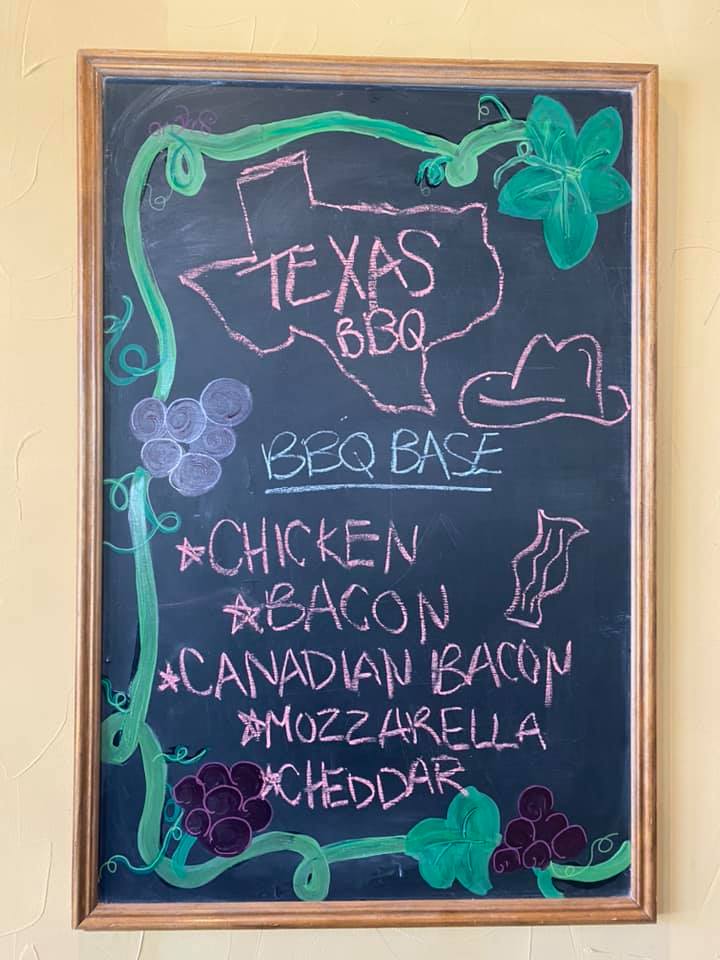 TEXAS
BBQ
BBQ BASE
☆CHICKEN
☆BACON
☆CANADIAN BACON
☆MOZZARELLA
☆CHEDDAR